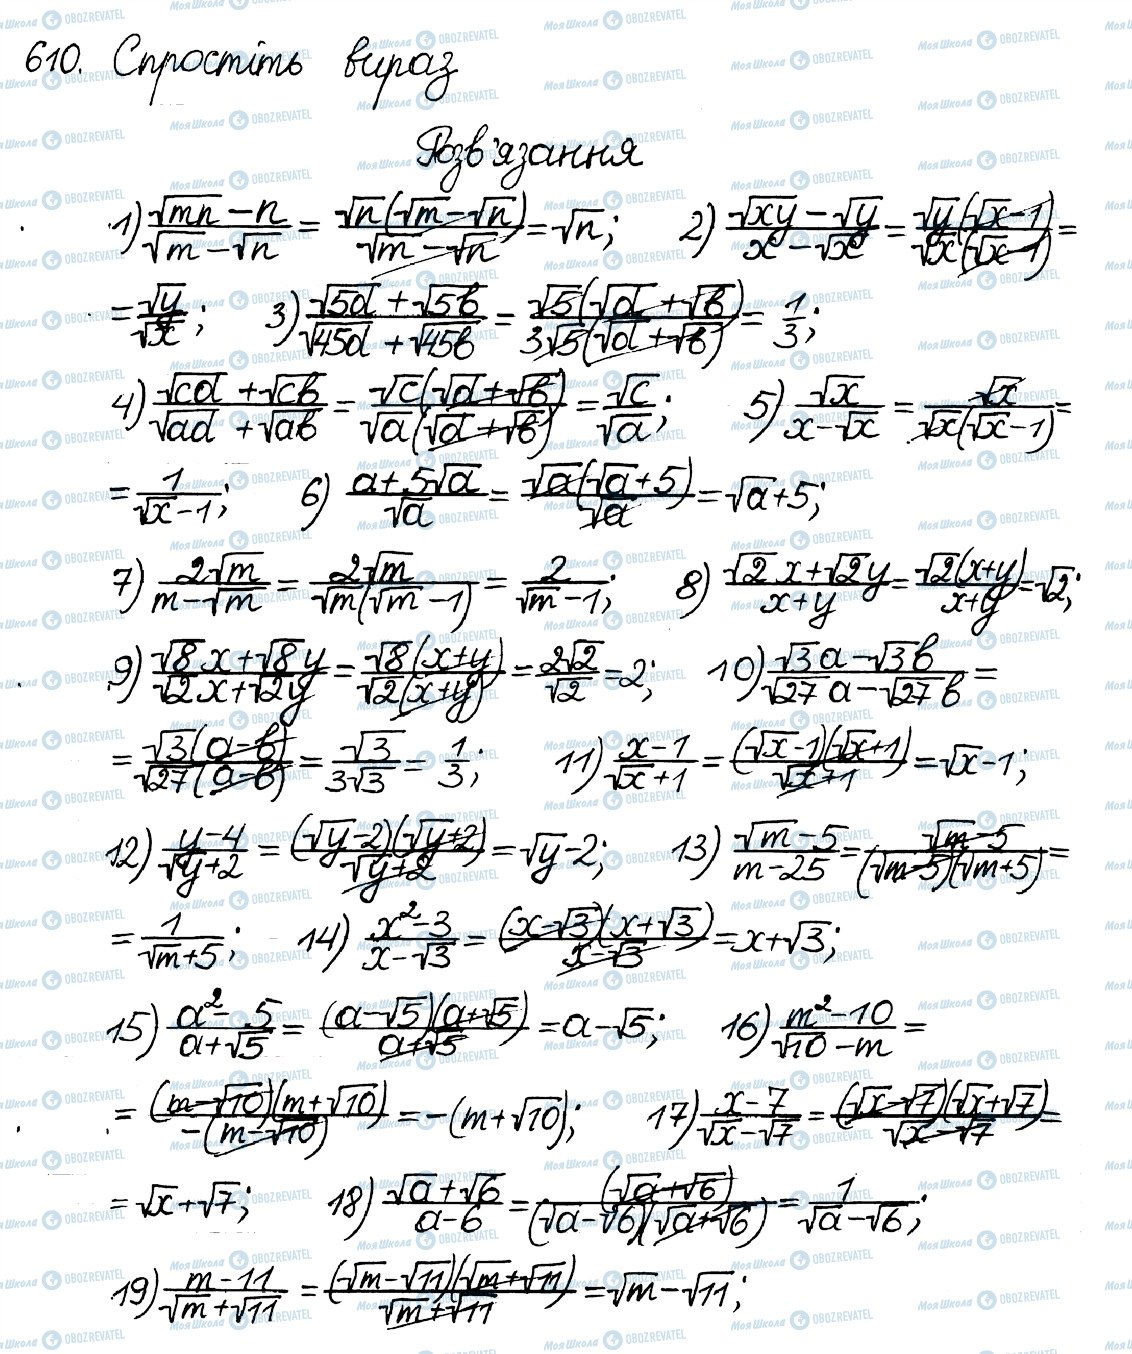 610. Спростіть вираз
Розв'язання
1) (√mn − n)/(√m − √n) = (√n(√m − √n))/(√m − √n) = √n; 2) (√xy − √y)/(x − √x) = (√y(√x − 1))/(√x(√x − 1)) =
= √y/√x; 3) (√5a + √5b)/(√45a + √45b) = (√5(√a + √b))/(3√5(√a + √b)) = 1/3;
4) (√ca + √cb)/(√ad + √ab) = (√c(√a + √b))/(√a(√d + √b)) = √c/√a; 5) √x/(x − √x) = √x/(√x(√x − 1)) =
= 1/(√x − 1); 6) (a + 5√a)/√a = (√a(√a + 5))/√a = √a + 5;
7) 2√m/(m − √m) = 2√m/(√m(√m − 1)) = 2/(√m − 1); 8) (√2x + √2y)/(x + y) = (√2(x + y))/(x + y) = √2;
9) (√8x + √8y)/(√2x + √2y) = (√8(x + y))/(√2(x + y)) = 2√2/√2 = 2; 10) (√3a − √3b)/(√27a − √27b) =
= (√3(a − b))/(√27(a − b)) = √3/3√3 = 1/3; 11) (x − 1)/(√x + 1) = ((√x − 1)(√x + 1))/(√x + 1) = √x − 1;
12) (y − 4)/(√y + 2) = ((√y − 2)(√y + 2))/(√y + 2) = √y − 2; 13) (√m − 5)/(m − 25) = (√m − 5)/((√m − 5)(√m + 5)) =
= 1/(√m + 5); 14) (x² − 3)/(x − √3) = ((x − √3)(x + √3))/(x − √3) = x + √3;
15) (a² − 5)/(a + √5) = ((a − √5)(a + √5))/(a + √5) = a − √5; 16) (m² − 10)/(√10 − m) =
= ((m − √10)(m + √10))/(−(m − √10)) = −(m + √10); 17) (x − 7)/(√x − √7) = ((√x − √7)(√x + √7))/(√x − √7) =
= √x + √7; 18) (√a + √6)/(a − 6) = (√a + √6)/((√a − √6)(√a + √6)) = 1/(√a − √6);
19) (m − 11)/(√m + √11) = ((√m − √11)(√m + √11))/(√m + √11) = √m − √11;